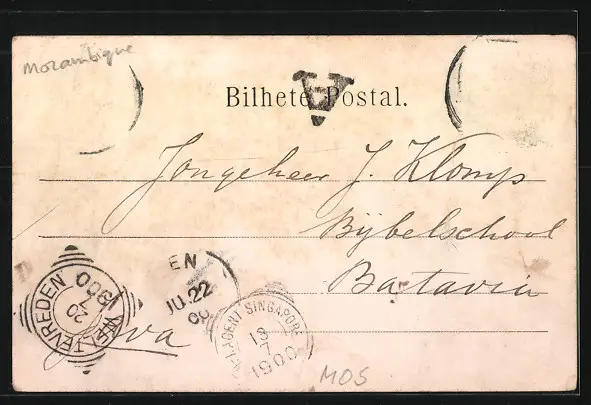 Mozambique
Bilhete Postal.
A
Jongeheer J. Klomp
Bijbelschool
Batavia
Java
WELTEVREDEN 20 7 1900
EN
JU 22
00
AGENT SINGAPORE
13 7 1900
MOS